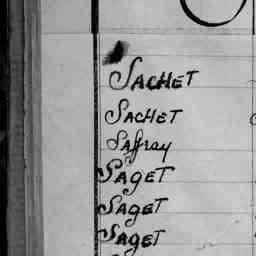 SACHET
SACHET
Saffray
SAGET
SAGET
SAGET